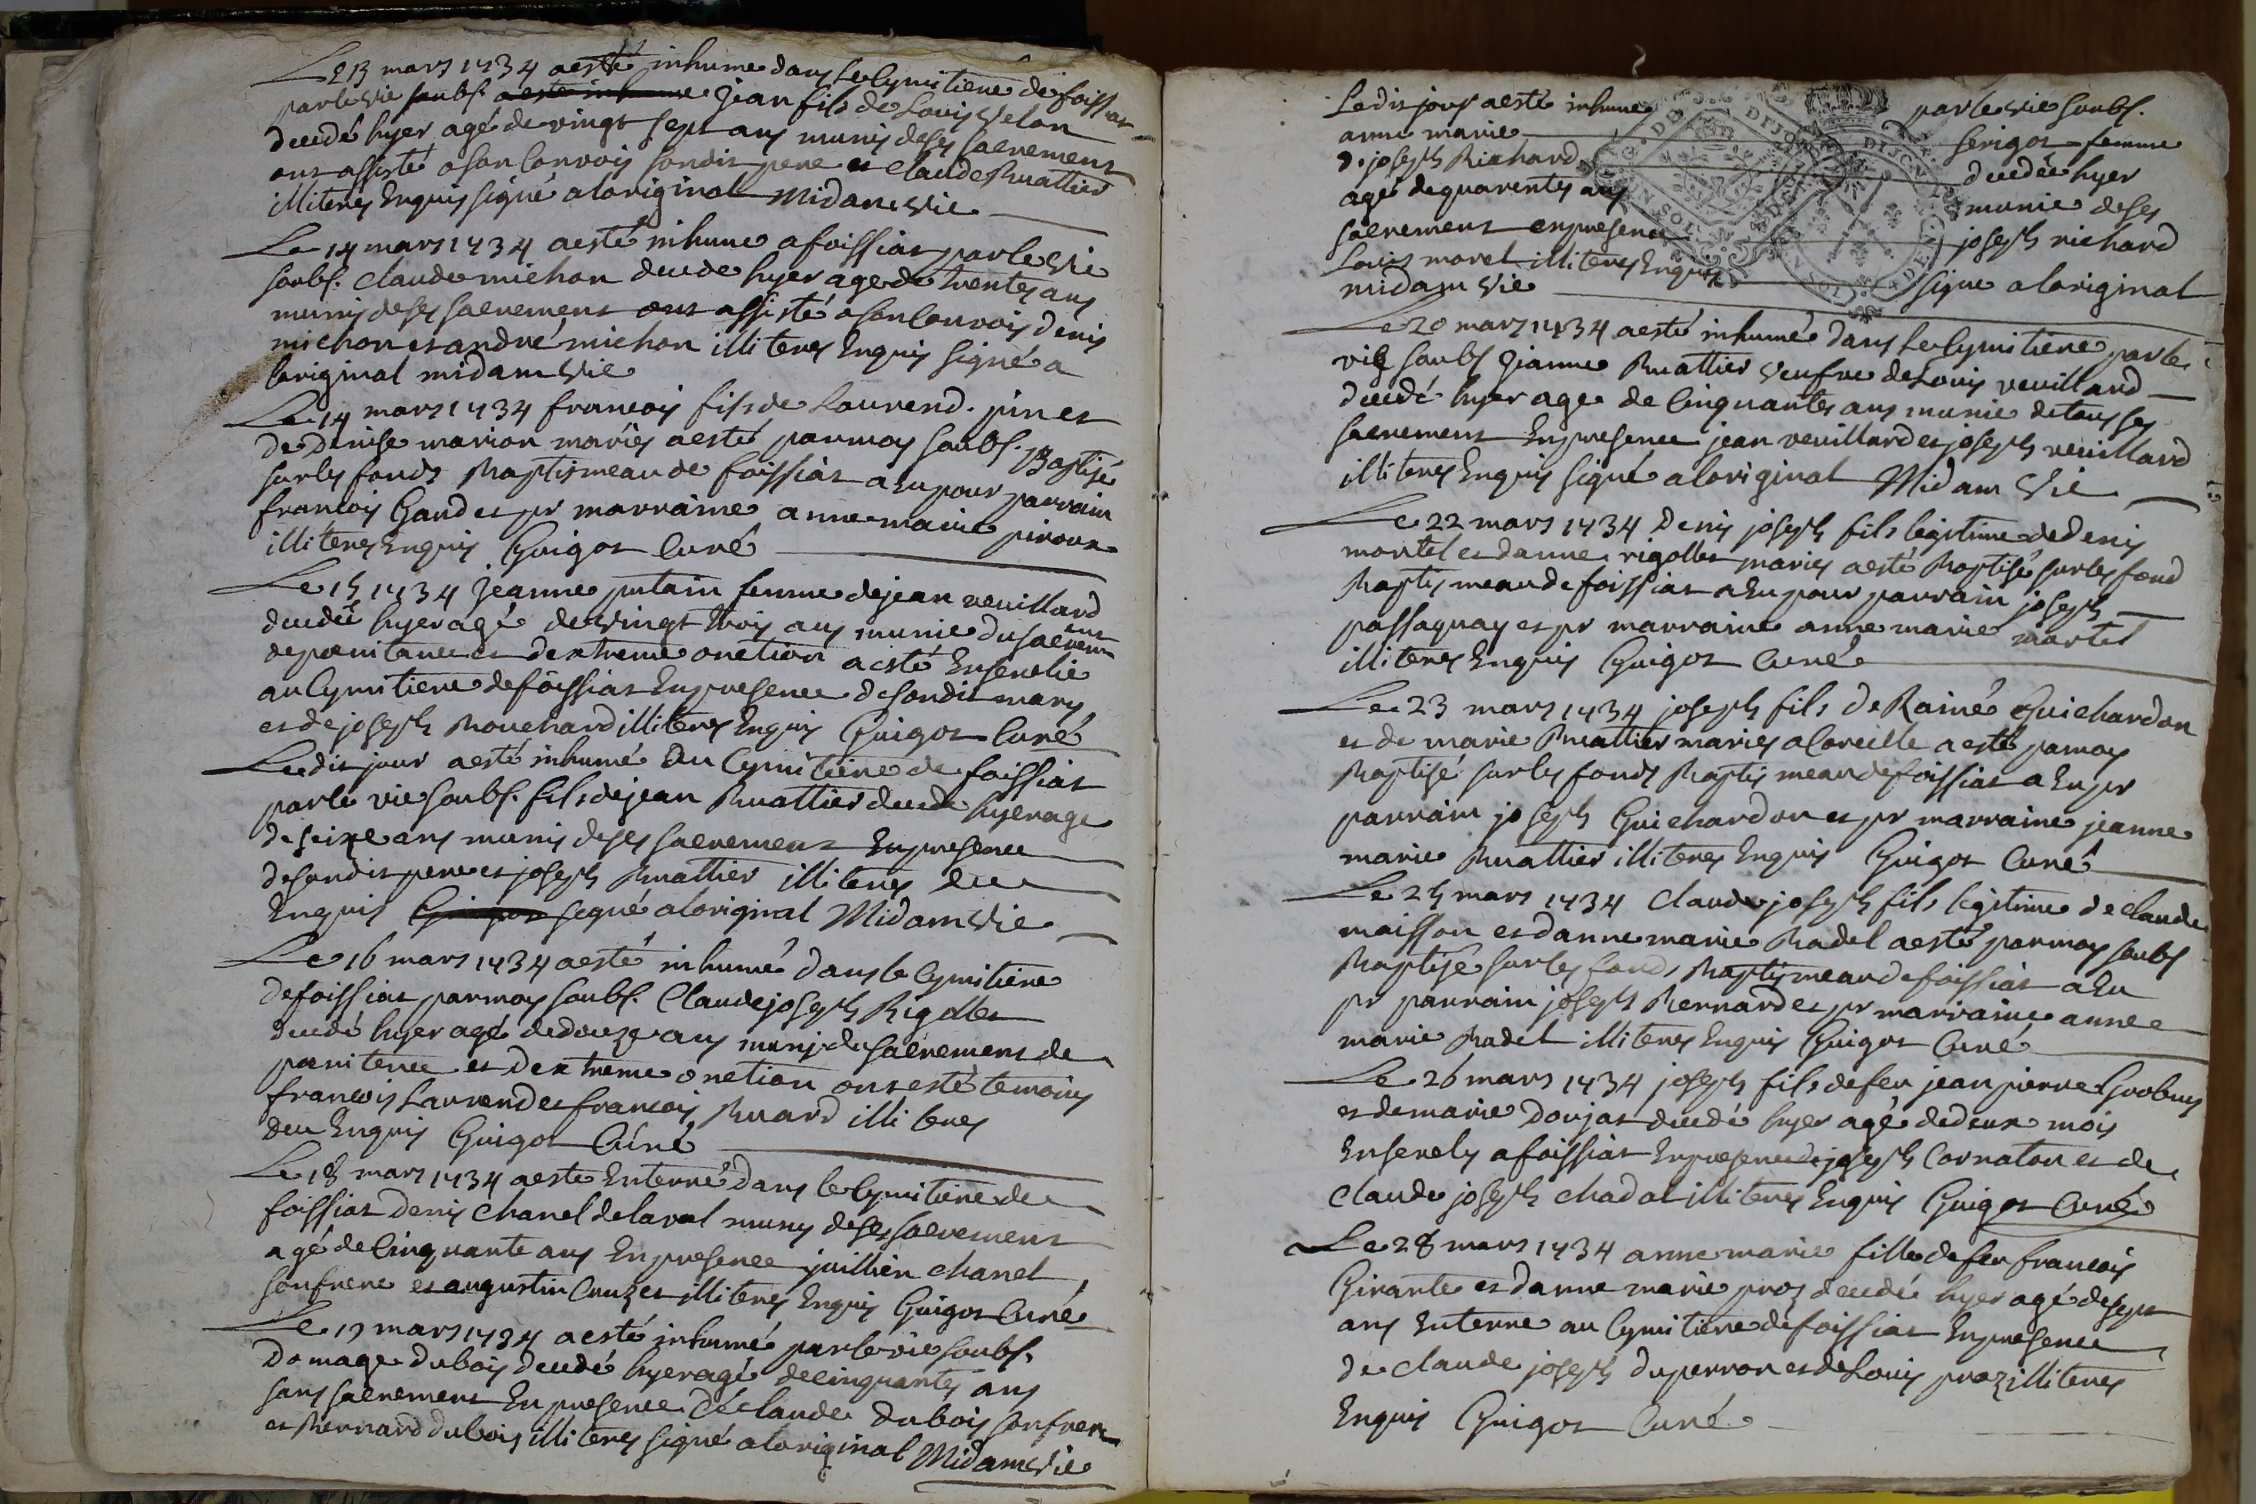 Le 13 mars 1734 aesté inhume dans Le Cymitiere de foissiat
par le vic soubs. aesté inhume jean fils de Louis velon
decedé hyer agé de vingt sept ans munis de ses sacremens
ont assisté a son Convois sondit pere et Claude Ruattier
illiterés Enquis signé aloriginal Midan vic
Le 14 mars 1734 aesté inhume a foissiat par le vic
soubs. Claude michon decede hyer age de trentes ans
munis de ses sacremens ont assisté a son Convois denis
michon et andré michon illiteres Enquis signé a
loriginal midan vic
Le 14 mars 1734 francois fils de Laurend. pin et
de denise marion mariés aesté parmoy soubs. Baptisé
sur les fonds Baptismeau de foissiat a Eu pour parrain
francois Gand et pr marraine anne marie piroux
illiteres Enquis Guigot Curé
Le 15 1734 Jeanne putain femme de jean veuillard
decedéé hyer agé de vingt trois ans munie du sacrem ent
de poenitance et dextreme onction aesté Ensevelie
au Cymitiere de foissiat En presence de sondit mary
et de joseph Bouchard illiteres Enquis Guigot Curé
Ledit jour aesté inhumé Au Cymitiere de foissiat
par le vic soubs. fils de jean Ruattier decede hyer age
de seize ans munis de ses sacremens En presence
de sondit pere et joseph Ruattier illiteres de ce
Enquis Guigot segné aloriginal Midam vic
Le 16 mars 1734 aesté inhumé dans le Cymitiere
de foissiat parmoy soubs. Claude joseph Rigollet
decedé hyer agé de douze ans munj du sacrement de
poenitence et dextreme onction ont esté temoins
francois Laurend et francois Ruard illiteres
dece Enquis Guigot Curé
Le 18 mars 1734 aeste Enterré dans le Cymitiere de
foissiat denis Chanel de laval muny de ses sacremens
agé de Cinquante ans En presence juillien chanel
son frere et augustin Cruzet illiteres Enquis Guigot Curé
Le 19 mars 1734 aesté inhumé par le vic soubs.
Domage dubois decedé hyer agé de cinquantes ans
sans sacremens En presence de Claude dubois son frere
et Bernard dubois illiteres signé aloriginal Midam vic
Ledit jour aesté inhumeé par le vic soubs.
anne marie serigot femme
d. joseph Richard decedéé hyer
age de quarentes ans munie de ses
sacremens en presence joseph richard
Louis morel illiteres Enquis signe aloriginal
midam vic
Le 20 mars 1734 aesté inhumée dans Le Cymitiere par le
vic soubs jeanne Ruattier veufve de Louis veuillard
decedé hyer agee de Cinquantes ans munie de tous ses
sacremens En presence jean veuillard et joseph veuillard
illiteres Enquis signé aloriginal Midam vic
Le 22 mars 1734 Denis joseph fils legitime de denis
martel et danne rigollet mariés aesté Baptisé sur les fond
Baptismeau de foissiat a Eu pour parrain joseph
passaquay et pr marraine anne marie martel
illiteres Enquis Guigot Curé
Le 23 mars 1734 joseph fils de Rainé Guichardon
et de marie Ruattier mariés a Coreille aesté parmoy
Baptisé sur les fonds Baptismeau de foissiat a Eu pr
parrain joseph Guichardon et pr marraine jeanne
marie Ruattier illiteres Enquis Guigot Curé
Le 25 mars 1734 Claude joseph fils legitime de Claude
maisson et danne marie Badel aesté parmoy soubs
Baptisé sur les fonds Baptismeau de foissiat a Eu
pr parrain joseph Bernard et pr marraine anne
marie Badel illiteres Enquis Guigot Curé
Le 26 mars 1734 joseph fils de feu jean pierre
et de marie Doujat decedé hyer agé de deux mois
Ensevely a foissiat En presence de joseph Cornaton et de
Claude joseph Chadal illiteres Enquis Guigot Curé
Le 28 mars 1734 anne marie fille de feu francois
Girante et danne marie proz decedé hyer agé de sept
ans Enterre au Cymitiere de foissiat En presence
de Claude joseph duperron et de Louis proz illiteres
Enquis Guigot Curé